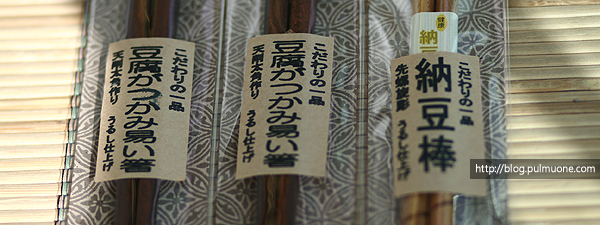 こだわりの一品
豆腐がつかみ易い箸
天削太角作り
うるし仕上げ
こだわりの一品
豆腐がつかみ易い箸
天削太角作り
うるし仕上げ
健康
納
こだわりの一品
納豆棒
うるし仕上げ
http://blog.pulmuone.com